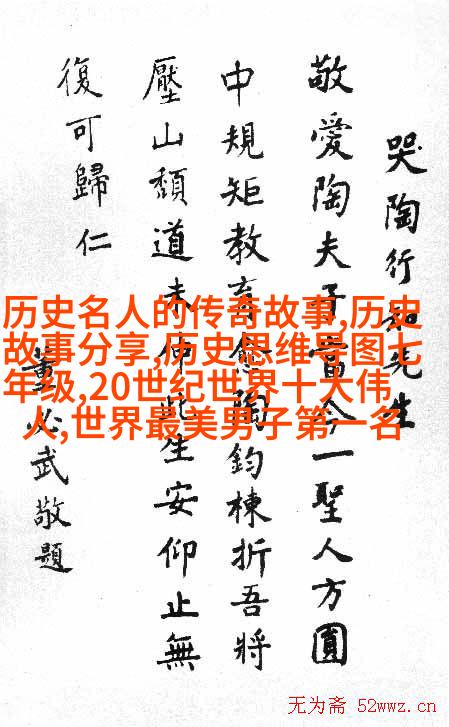 哭陶行知先生
敬愛陶夫子當今一聖人方圓
中規矩教育陶鈞棟折吾將
壓山頹道未伸此生安仰止無
復可歸仁
董必武敬題
历史名人的传奇故事,历史
故事分享,历史思维导图七
年级,20世纪世界十大伟
人,世界最美男子第一名
无为斋 52wwz.cn